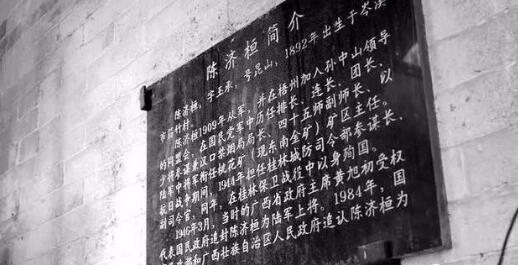 陈济桓简介
陈济桓,字玉来,号昆山,1892年出生于岑溪
市
陈济桓1909年从军,并在梧州加入孙中山领导
的同盟会。在国民党军中历任排长、连长、团长、
少将参谋长、汉口梁烟局局长、四十五师副师长,以
陆军中将军衔任桃花矿(现东南金矿)矿区主任。
抗日战争期间,1944年担任桂林城防司令部参谋长、
副司令官。同年,在桂林保卫战役中以身殉国。
1946年3月,当时的广西省政府主席黄旭初受权
代表国民政府追封陈济桓为陆军上将。1984年,国
和广西壮族自治区人民政府追认陈济桓为